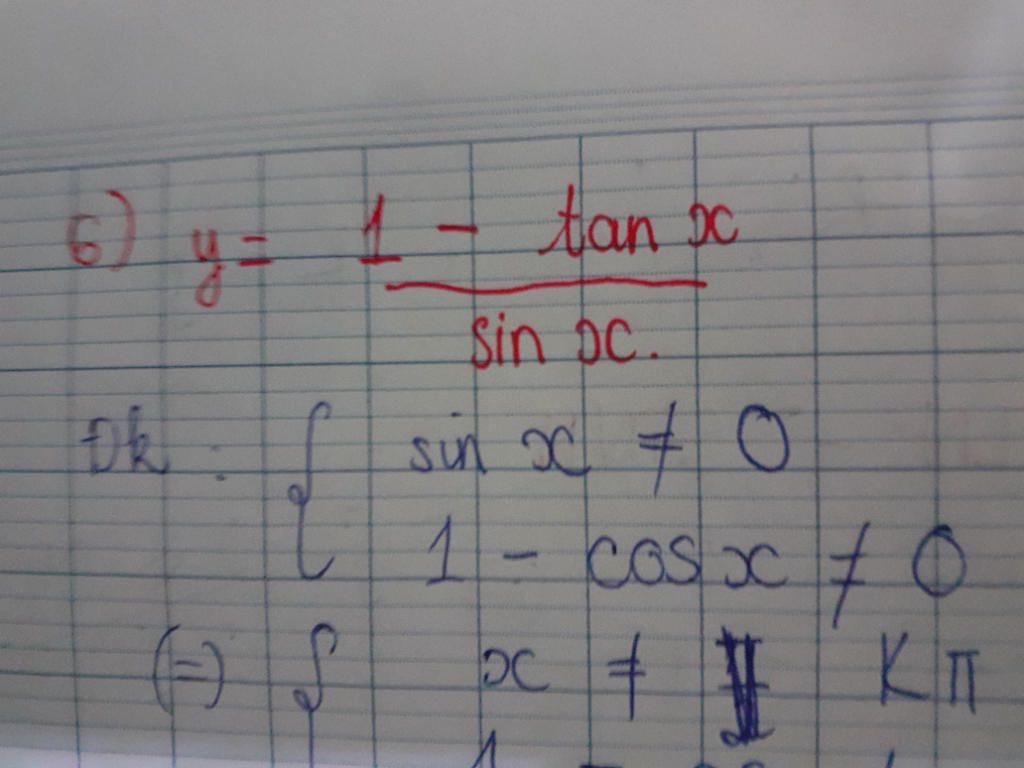 6) y = 1 - tan x
sin x.
Đk : { sin x ≠ 0
1 - cos x ≠ 0
(=) { x ≠ Kπ